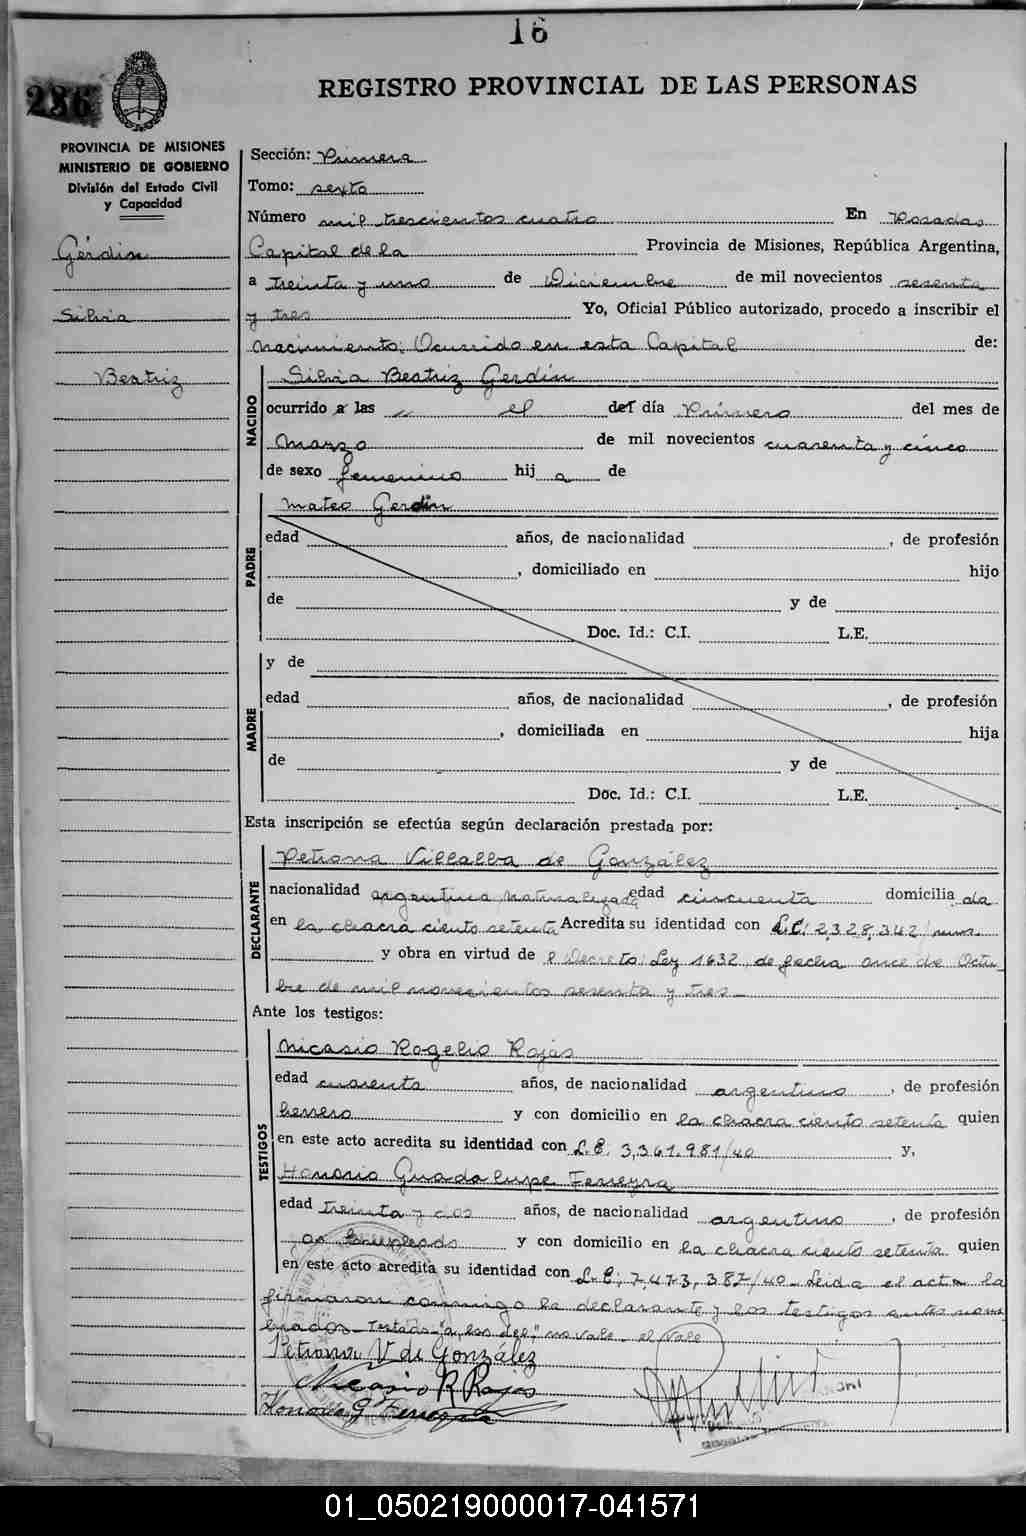 16
286
REGISTRO PROVINCIAL DE LAS PERSONAS
PROVINCIA DE MISIONES
MINISTERIO DE GOBIERNO
División del Estado Civil
y Capacidad
Gerdin
Silvia
Beatriz
Sección: Primera
Tomo: sexto
Número mil trescientos cuatro En Posadas
Capital de la Provincia de Misiones, República Argentina,
a treinta y uno de Diciembre de mil novecientos sesenta
y tres Yo, Oficial Público autorizado, procedo a inscribir el
nacimiento: Ocurrido en esta Capital de:
NACIDO
Silvia Beatriz Gerdin
ocurrido a las el del día Primero del mes de
Marzo de mil novecientos cuarenta y cinco
de sexo femenino hij a de
PADRE
Mateo Gerdin
edad años, de nacionalidad , de profesión
, domiciliado en hijo
de y de
Doc. Id.: C.I. L.E.
MADRE
y de
edad años, de nacionalidad , de profesión
, domiciliada en hija
de y de
Doc. Id.: C.I. L.E.
Esta inscripción se efectúa según declaración prestada por:
DECLARANTE
Petrona Villalba de González
nacionalidad argentina naturalizada edad cincuenta domicilia da
en la chacra ciento setenta Acredita su identidad con L.C: 2,328,342
y obra en virtud de l Decreto Ley 1632, de fecha once de Octu-
bre de mil novecientos sesenta y tres_
Ante los testigos:
TESTIGOS
Nicasio Rogelio Rojas
edad cuarenta años, de nacionalidad argentino , de profesión
herrero y con domicilio en la chacra ciento setenta quien
en este acto acredita su identidad con L.E: 3,361.981/40 y,
Honorio Guadalupe Ferreyra
edad treinta y dos años, de nacionalidad argentino , de profesión
Empleado y con domicilio en la chacra ciento setenta quien
en este acto acredita su identidad con L.E; 7,473,387/40_ Leida el acta la
firmaron conmigo la declarante y los testigos antes nom-
brados_ Testado "a, las del," no vale_ el vale
Petrona V de González
Nicasio R Rojas
Honorio G Ferreyra
01_050219000017-041571